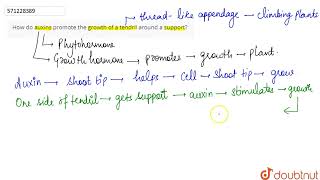 571228389
→ thread-like appendage → climbing plants
How do auxins promote the growth of a tendril around a support?
→ Phytohormone
→ Growth hormone → promotes → growth → plant.
Auxin → Shoot tip → helps → Cell → Shoot tip → grow
One side of tendril → gets support → auxin → stimulates → growth
doubtnut